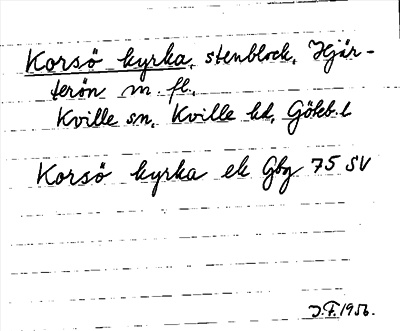 Korsö kyrka, stenblock, Hjär-
terön m. fl.
Kville sn, Kville hd, Göteb. l
Korsö kyrka ek Gbg 75 SV
J.F. 1956.